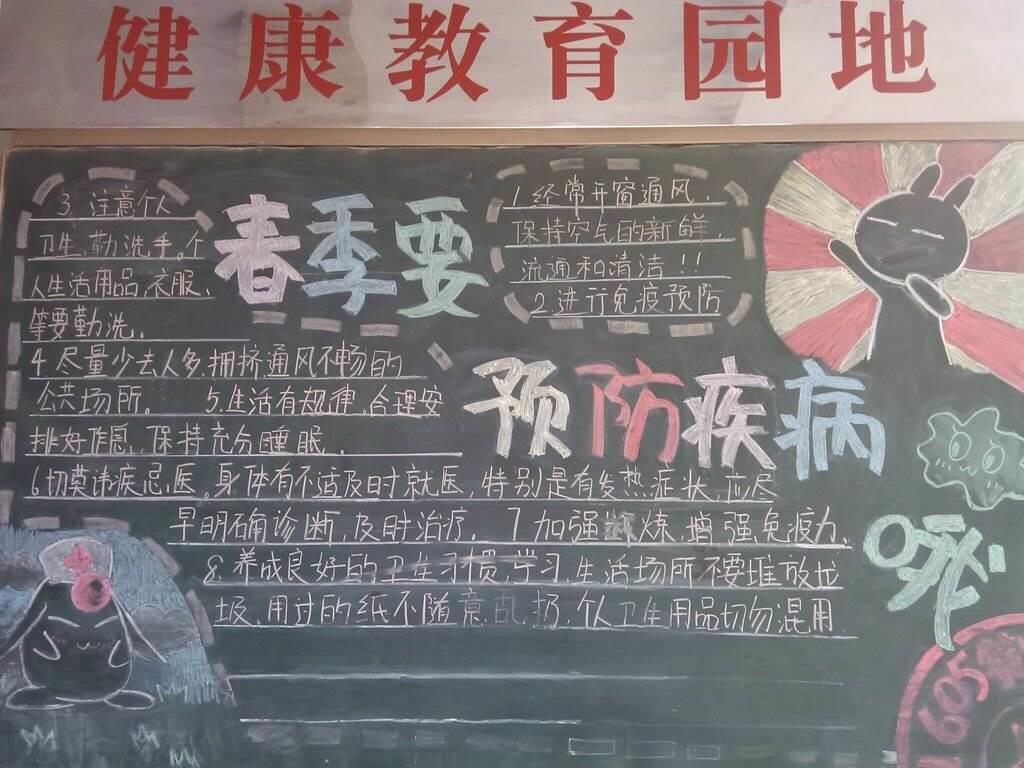 健康教育园地
春季要
预防疾病
哦
1.经常开窗通风,
保持空气的新鲜,
流通和清洁!!
2.进行免疫预防
3.注意个人
卫生,勤洗手。个
人生活用品,衣服、
等要勤洗。
4.尽量少去人多,拥挤通风不畅的
公共场所。 5.生活有规律,合理安
排好作息,保持充分睡眠。
6.切莫讳疾忌医。身体有不适及时就医,特别是有发热症状,应尽
早明确诊断,及时治疗。 7.加强锻炼,增强免疫力。
8.养成良好的卫生习惯,学习,生活场所不要堆放垃
圾、用过的纸不随意乱扔,个人卫生用品切勿混用.
1605